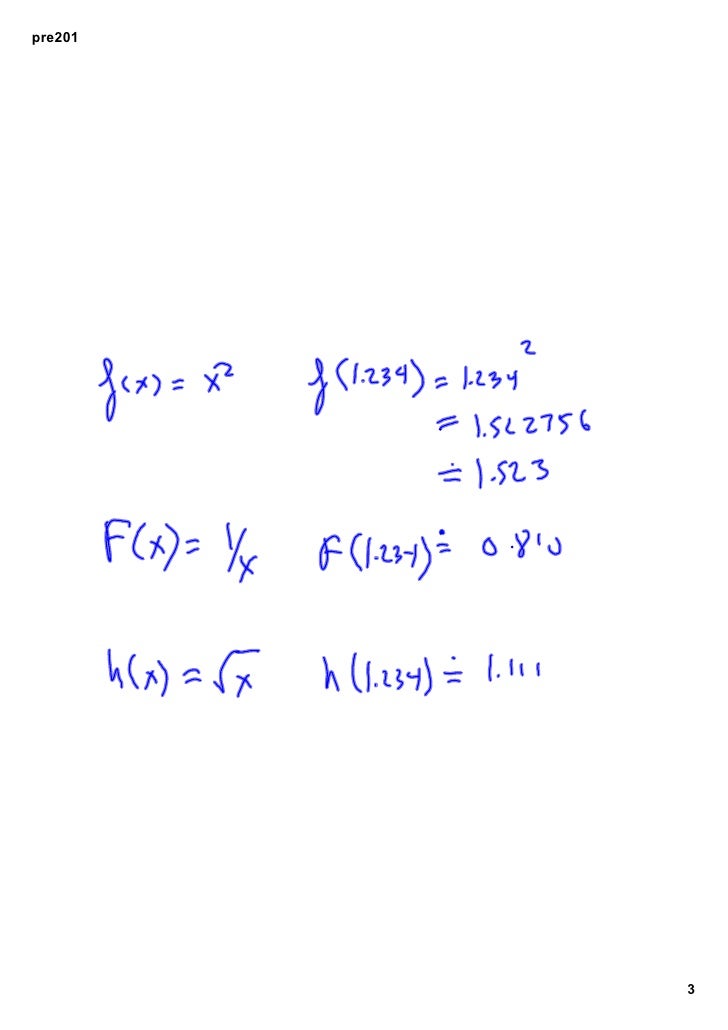 pre201
f(x) = x² f(1.234) = 1.234²
= 1.522756
≐ 1.523
F(x) = 1/x F(1.234) ≐ 0.810
h(x) = √x h(1.234) ≐ 1.111
3